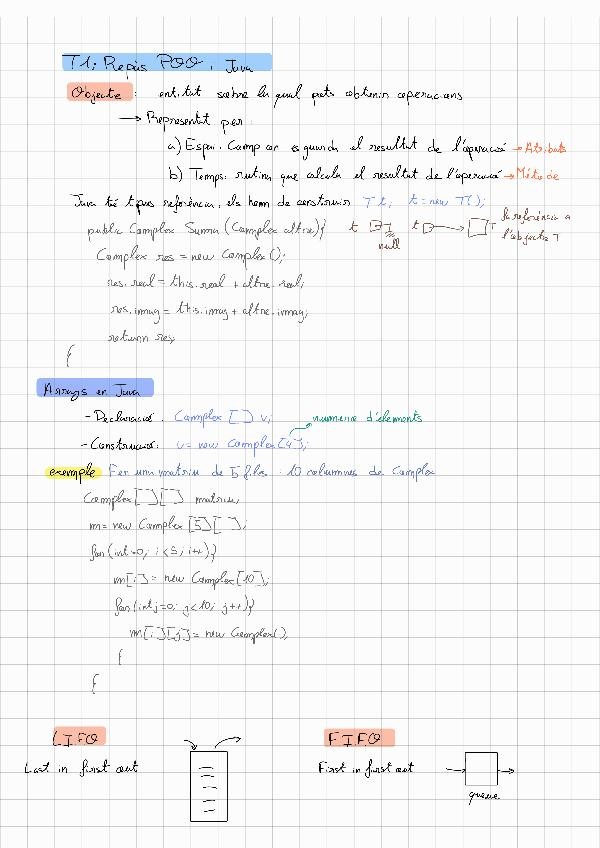 T1: Repàs POO. Java
Objecte: entitat sobre la qual pots obtenir operacions
→ Representat per:
a) Espai. Camp on es guarda el resultat de l'operació → Atributs
b) Temps: rutina que calcula el resultat de l'operació → Mètode
Java té tipus referència, els hem de construir T t; t = new T();
public Complex Suma (Complex altre){ t null t → T la referència a l'objecte T
Complex res = new Complex();
res.real = this.real + altre.real;
res.imag = this.imag + altre.imag;
return res;
}
Arrays en Java
- Declaració: Complex [] v; numero d'elements
- Construcció: v = new Complex[4];
exemple Fer una matriu de 5 files i 10 columnes de Complex
Complex[][] matriu;
m = new Complex [5][];
for (int=0; i<5; i++){
m[i] = new Complex[10];
for (int j=0; j<10; j++){
m[i][j] = new Complex();
}
}
LIFO
Last in first out
FIFO
First in first out
queue